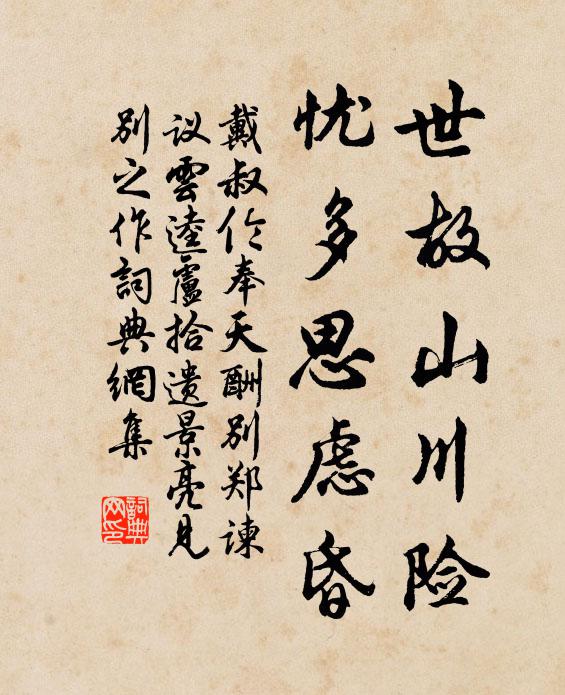 世故山川险
忧多思虑昏
戴叔伦奉天酬别郑谏
议雲逵盧拾遗景亮见
别之作詞典網集
詞典
网印